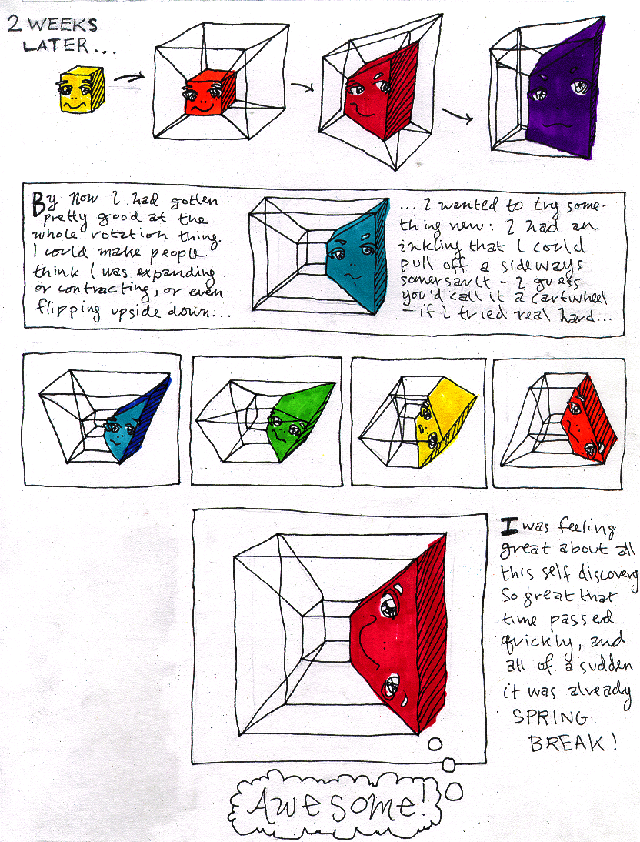 2 WEEKS
LATER...
By now I had gotten
pretty good at the
whole rotation thing.
I could make people
think I was expanding
or contracting, or even
flipping upside down...
... I wanted to try some-
thing new: I had an
inkling that I could
pull off a sideways
somersault - I guess
you'd call it a cartwheel
- if I tried real hard...
I was feeling
great about all
this self discovery
So great that
time passed
quickly, and
all of a sudden
it was already
SPRING
BREAK!
Awesome!